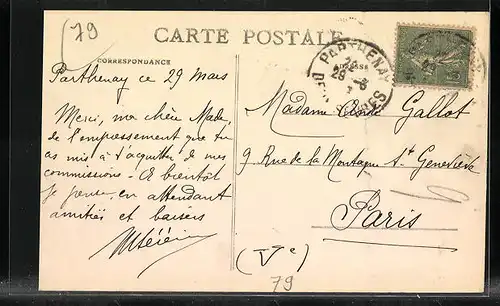 79
CARTE POSTALE
CORRESPONDANCE
ADRESSE
PARTHENAY
Parthenay ce 29 Mars
Merci, ma chère Made,
de l'empressement que tu
as mis à t'acquitter de mes
commissions - à bientôt
je pense, en attendant
amitiés et baisers
Madame Gallot
9. Rue de la Montagne Ste Geneviève
Paris
(Ve)
79